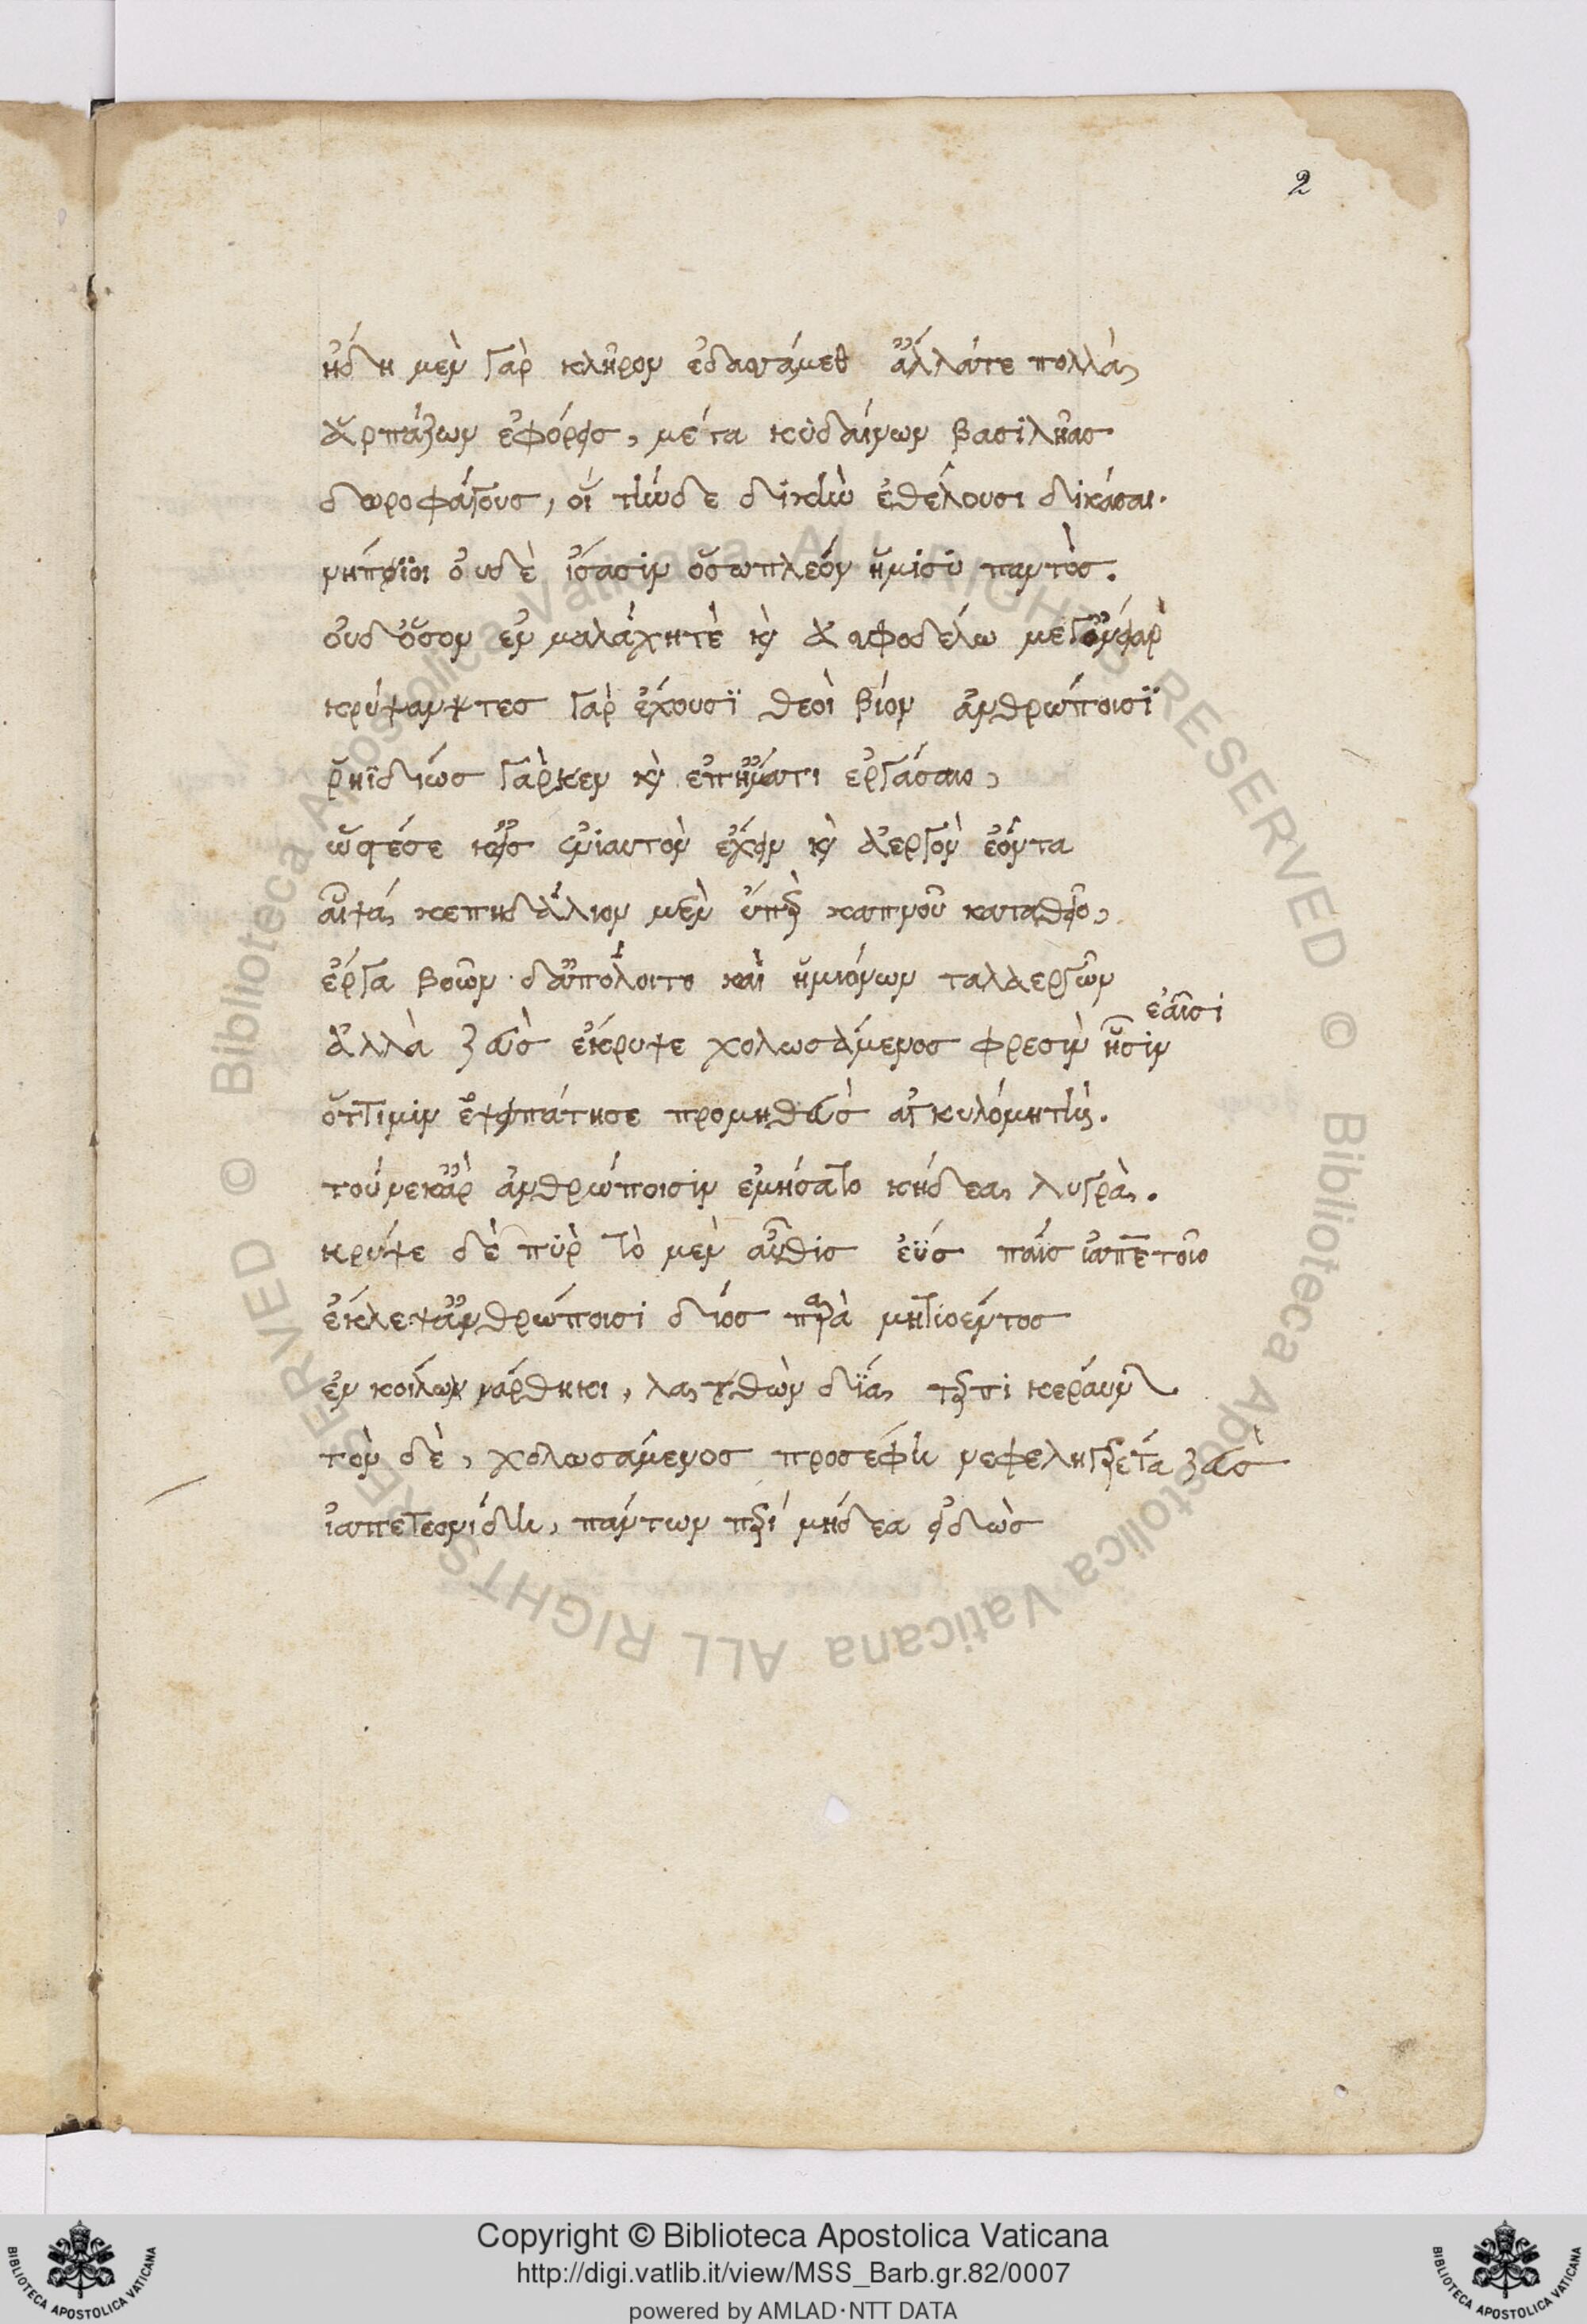 2
ἤδη μὲν γὰρ κλῆρον ἐδασάμεθ ἄλλάτε πολλὰ
ἅρπάζων ἐφόρεις, μέτα κυδαίνων βασιλῆας
δωροφάγους, οἵ τήνδε δίκην ἐθέλουσι δικάσαι.
νήπιοι ὀυδὲ ἴσασιν ὅσωπλέον ἥμισυ παντὸς.
ὀυδὅσον ἐν μαλάχητὲ κὴ ἀσφοδέλω μέγὄνειαρ
κρύψαντες γὰρ ἔχουσϊ θεοὶ βίον ἀνθρώποισϊ
ῥηϊδίως γὰρκεν κὴ ἐπἤματι ἐργάσαιο,
ὥστέσε κεἰς ἐνιαυτὸν ἔχειν κὴ ἀεργὸν ἐόντα
αἶψά κεπηδάλιον μὲν ὑπὲρ καπνοῦ καταθεῖο,
ἔργα βοῶν δἀπόλοιτο καὶ ἡμιόνων ταλαεργῶν
ἑαῖσι
ἀλλὰ ζεὺς ἔκρυψε χολωσάμενος φρεσὶν ᾗσιν
ὅττιμιν ἐξαπάτησε προμηθεὺς ἀγκυλόμητης.
τούνεκἄρ ἀνθρώποισιν ἐμήσατο κήδεα λυγρὰ.
κρύψε δὲ πῦρ τὸ μὲν αὖθις ἐῢς παῖς ἰαπετοῖο
ἔκλεψἀνθρώποισι διός παρὰ μητιοέντος
ἐν κοίλω νάρθηκι, λαθὼν δία τερπικέραυνον
τὸν δὲ, χολωσάμενος προσέφη νεφεληγερέτα ζεὺς
ἰαπετεονίδη, πάντων πέρι μήδεα εἰδὼς
Copyright © Biblioteca Apostolica Vaticana
http://digi.vatlib.it/view/MSS_Barb.gr.82/0007
powered by AMLAD·NTT DATA
BIBLIOTECA APOSTOLICA VATICANA
BIBLIOTECA APOSTOLICA VATICANA
© Biblioteca Apostolica Vaticana ALL RIGHTS RESERVED © Biblioteca Apostolica Vaticana ALL RIGHTS RESERVED